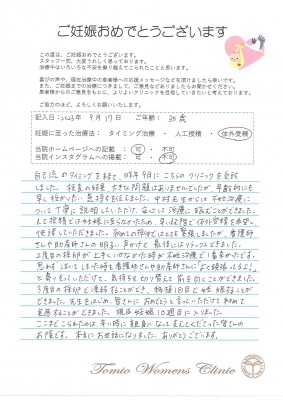 ご妊娠おめでとうございます
この度は、ご妊娠おめでとうございます。
スタッフ一同、大変うれしく思っております。
治療中はいろいろな不安を乗り越えてこられたことと思います。
喜びの声や、現在治療中の患者様への応援メッセージなどを頂けましたら幸いです。
また、ご妊娠までの治療につきまして、ご意見などありましたらお聞かせください。
患者様からのご意見をもとに、よりよいクリニックを目指していきたいと考えております。
ご協力のほど、よろしくお願いいたします。
記入日：2023年 9月17日 ご年齢： 35歳
妊娠に至った治療法： タイミング治療 ・ 人工授精 ・ 体外受精
当院ホームページへの記載： 可 ・ 不可
当院インスタグラムへの掲載： 可 ・ 不可
自己流のタイミングを経て、昨年9月にこちらのクリニックを受診
しました。検査の結果、大きな問題はありませんでしたが、年齢的にも
早く授かりたい気持ちを伝えました。中村先生からは不妊治療に
ついて丁寧に説明していただけ、安心して治療に臨むことができました。
人工授精では妊娠に至らなかったため、早い段階で体外受精を希望し
採卵していただきました。初めての採卵はとても緊張しましたが、看護師
さんや助産師さんの明るい声かけで最後にはリラックスできました。
2度目の採卵が上手くいかなかった時が不妊治療で1番辛かったです。
思わず泣いてしまった時も看護師さんや助産師さんに「よく頑張ってるよ！」
と寄りそっていただけて、気持ちを切り替えて前を向くことができました。
3度目の採卵で凍結することができ、移植1回目で妊娠することが
できました。先生をはじめ、皆さんにおめでとうと言っていただけて初めて
実感することができました。現在妊娠10週目に入りました。
ここまでこられたのは、辛い時に親身になって支えてくださった皆さんの
お陰です。本当にお世話になりました。ありがとうございます。
Tomio Womens Clinic